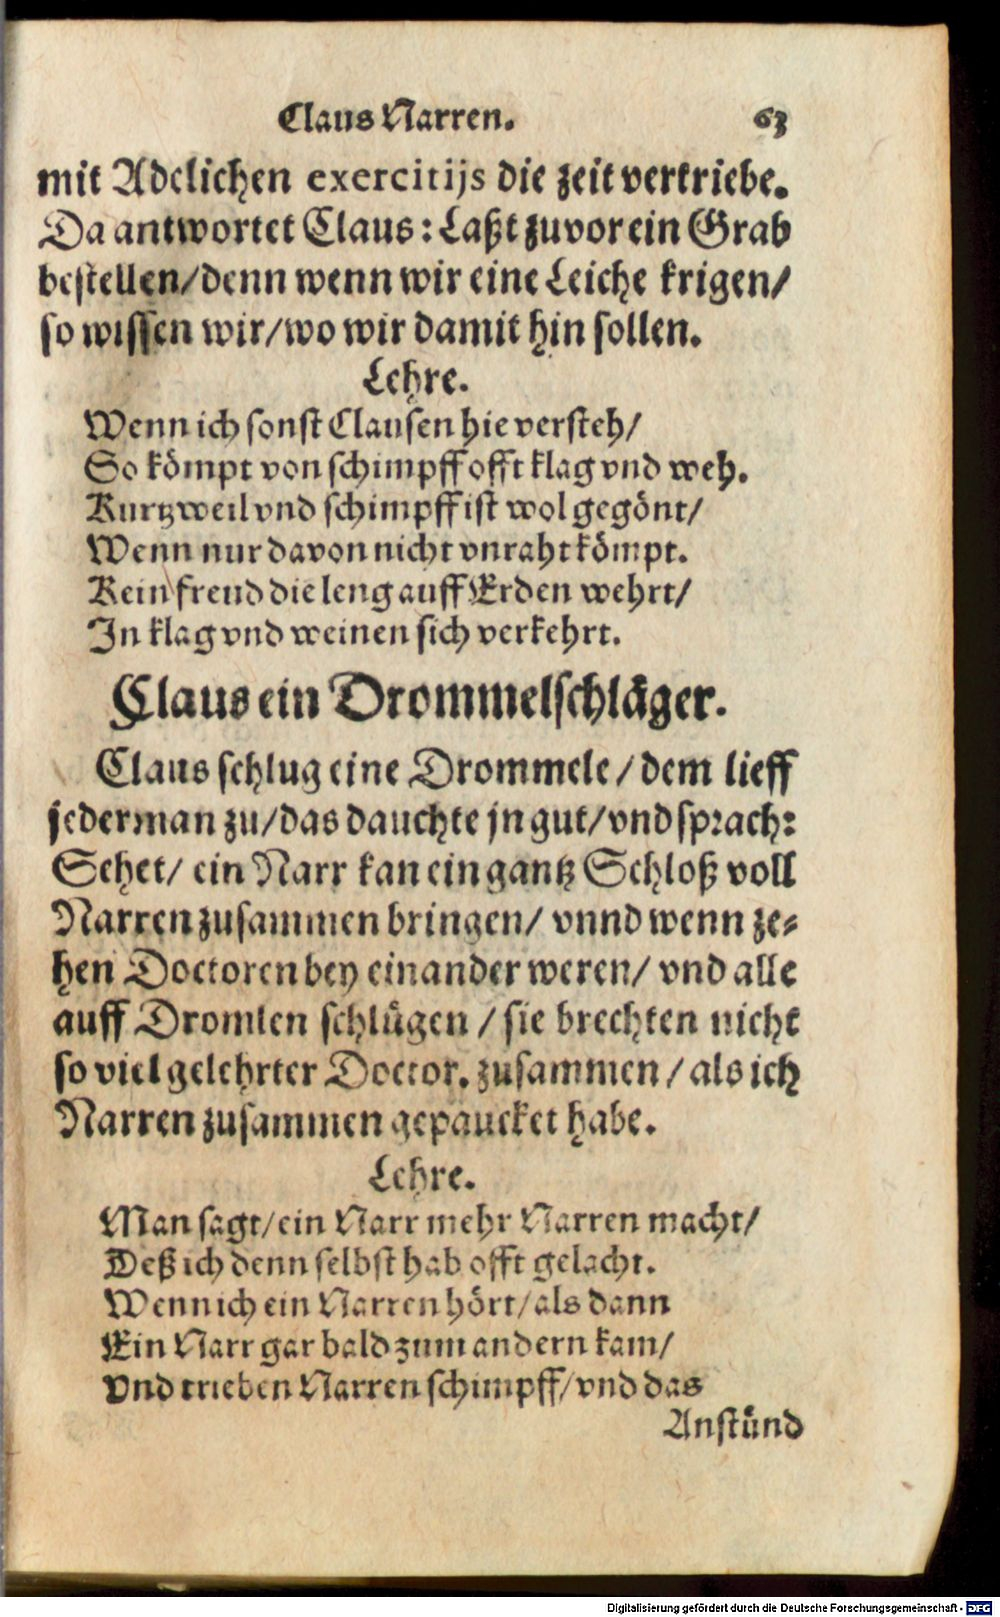 Claus Narren. 63
mit Adelichen exercitijs die zeit vertriebe.
Da antwortet Claus: Laßt zuvor ein Grab
bestellen/ denn wenn wir eine Leiche krigen/
so wissen wir/ wo wir damit hin sollen.
Lehre.
Wenn ich sonst Clausen hie versteh/
So kömpt von schimpff offt klag vnd weh.
Kurtzweil vnd schimpff ist wol gegönt/
Wenn nur davon nicht vnraht kömpt.
Kein freud die leng auff Erden wehrt/
In klag vnd weinen sich verkehrt.
Claus ein Drommelschläger.
Claus schlug eine Drommele/ dem lieff
jederman zu/ das dauchte jn gut/ vnd sprach:
Sehet/ ein Narr kan ein gantz Schloß voll
Narren zusammen bringen/ vnnd wenn ze-
hen Doctoren bey einander weren/ vnd alle
auff Dromlen schlügen/ sie brechten nicht
so viel gelehrter Doctor. zusammen/ als ich
Narren zusammen gepaucket habe.
Lehre.
Man sagt/ ein Narr mehr Narren macht/
Deß ich denn selbst hab offt gelacht.
Wenn ich ein Narren hört/ als dann
Ein Narr gar bald zum andern kam/
Vnd trieben Narren schimpff/ vnd das
Anstünd
Digitalisierung gefördert durch die Deutsche Forschungsgemeinschaft - DFG